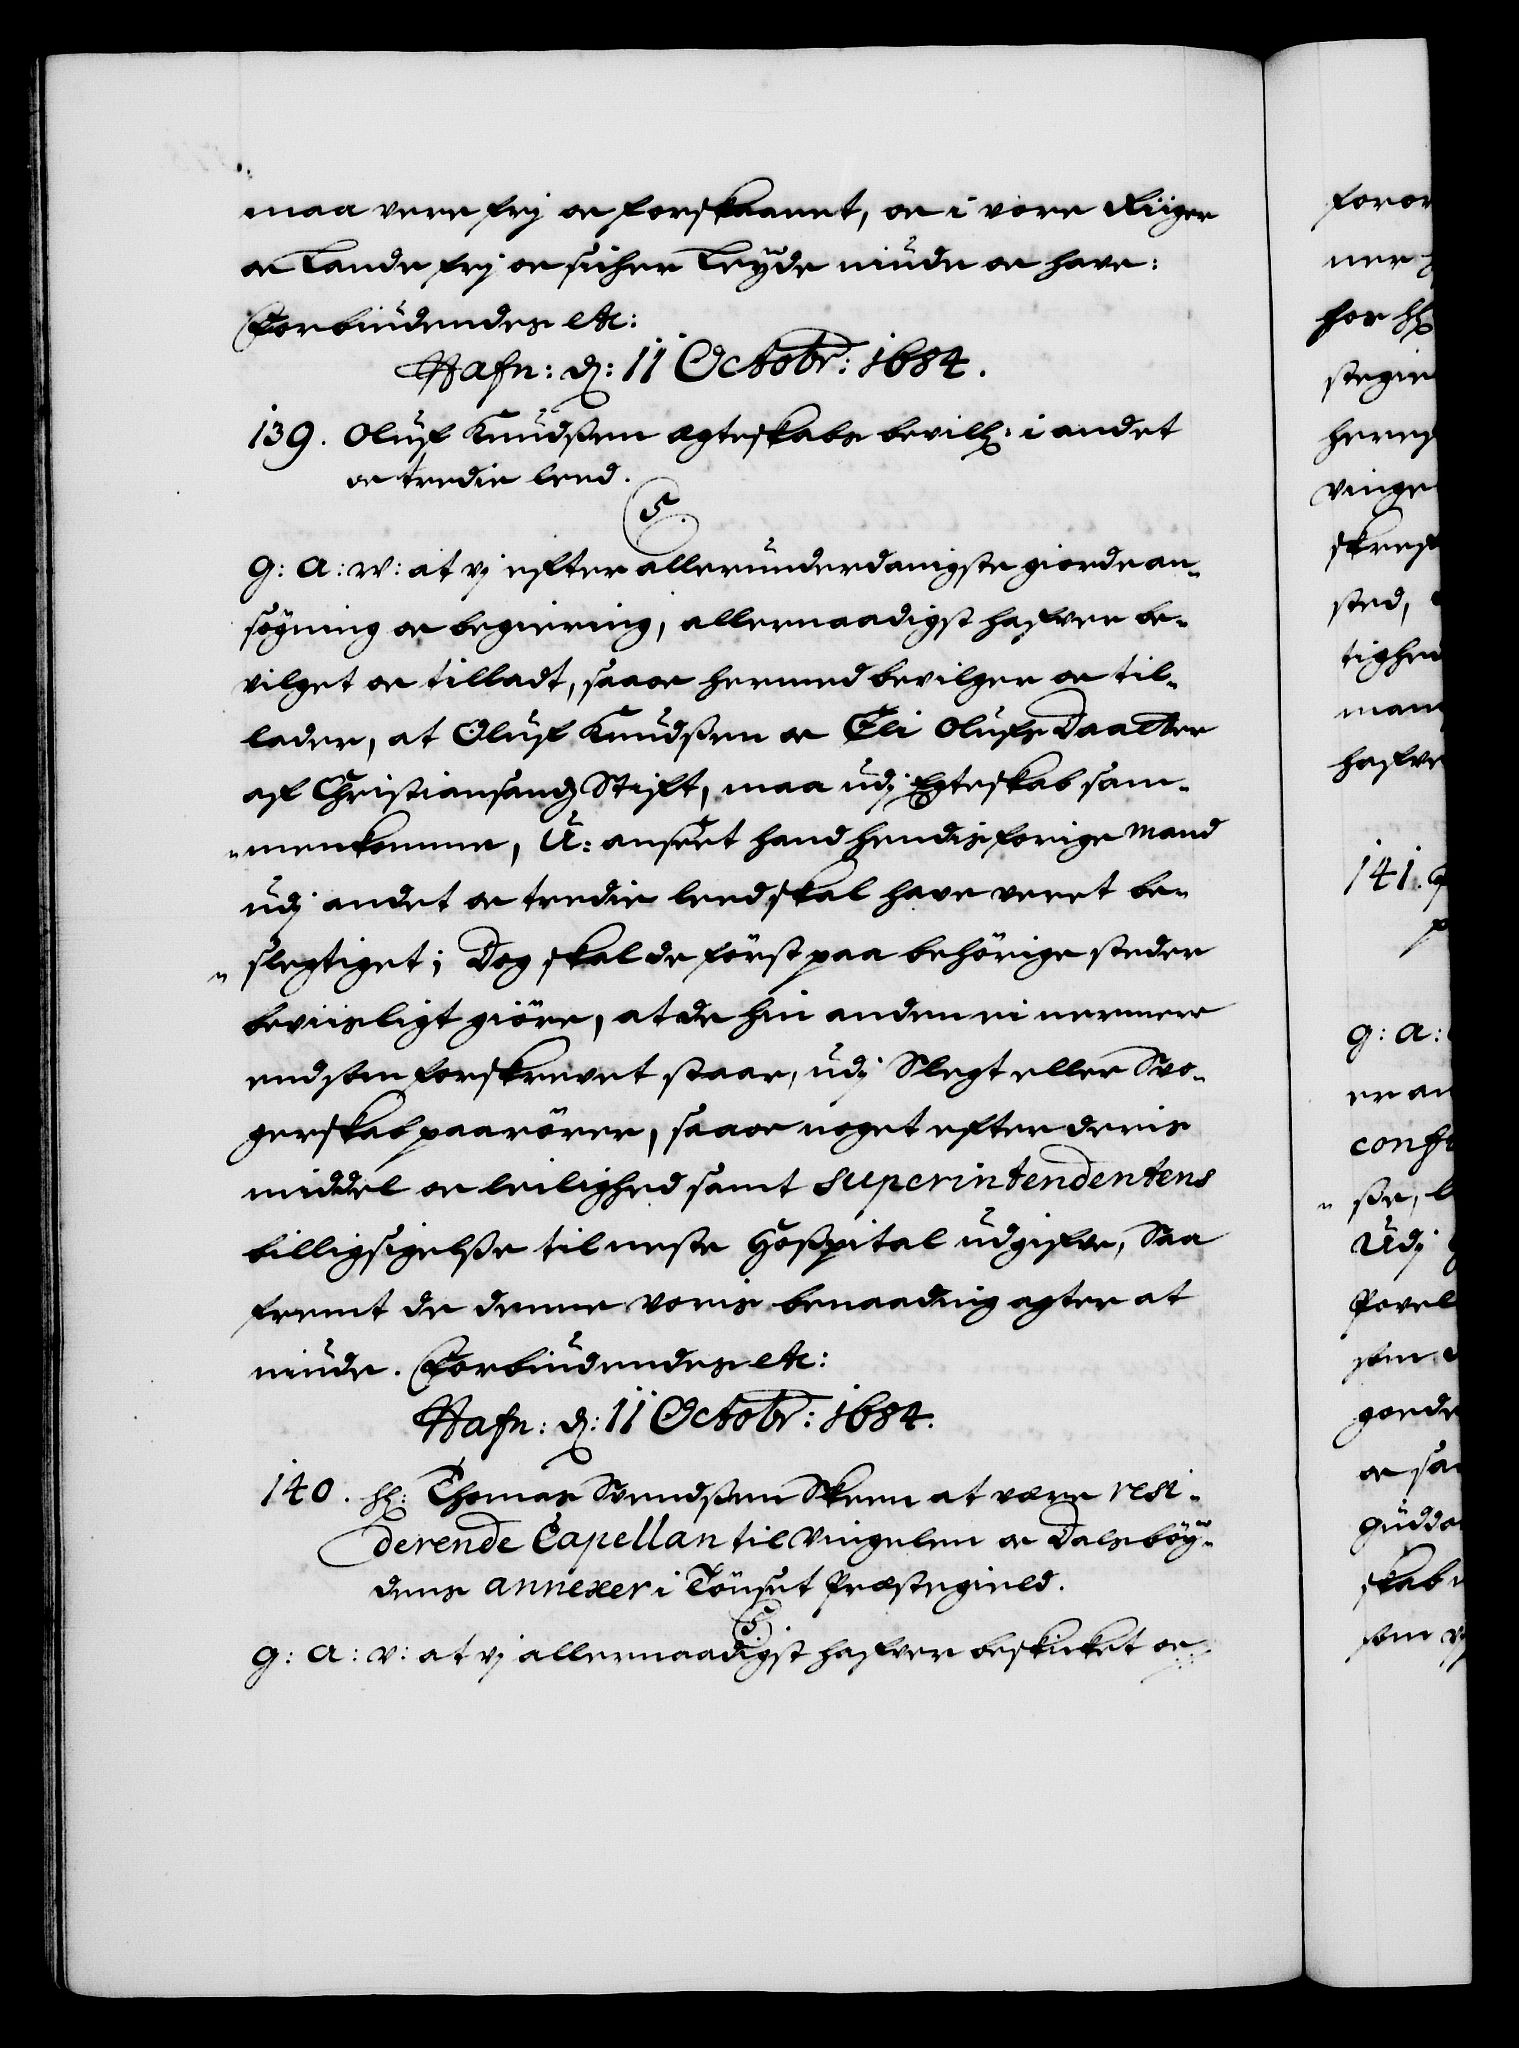 maa vere frj oc forskaanet, oc i vore Riiger
oc Lande frj oc sicher Leyde niude oc have:
Forbiudendes etc:
Hafn: d: 11 Octobr: 1684.
139. Oluf Knudssen egteskabs bevill: i andet
oc tredie leed.
5.
G: A: W: at vj efter allerunderdanigste giorde an-
søgning oc begiering, allernaadigst hafver be-
vilget oc tilladt, saa oc hermed bevilger oc til-
lader, at Oluf Knudssen oc Eli Olufs Daatter
af Christiansands Stift, maa udj Egteskab sam-
menkomme, U: anseet hand hendis forige Mand
udj andet oc tredie leed skal have veret be-
slegtiget; Dog skal de först paa behörige steder
beviisligt giöre, at de hin anden ei nermere
end som forskrevet staar, udj Slegt eller Svo-
gerskab paarörer, saa oc noget efter deris
middel oc leilighed samt Superintendentens
billigsigelsse til neste Hosspital udgifve, Saa
fremt de denne voris benaading agter at
niude. Forbiudendes etc:
Hafn: d: 11 Octobr: 1684.
140. hr: Thomas Svendssen Skeen at være resi-
derende Capellan til Vingelen oc Dalsböy-
dens annexer i Tönset Præstegield.
5.
G: A: V: at vj allernaadigst hafver beskicket oc
ner
for hr
vinge
sted,
tighed
hafve
141.
G: A:
er an
sse,
Udj
Povel
som
oc saa
skab
som vj